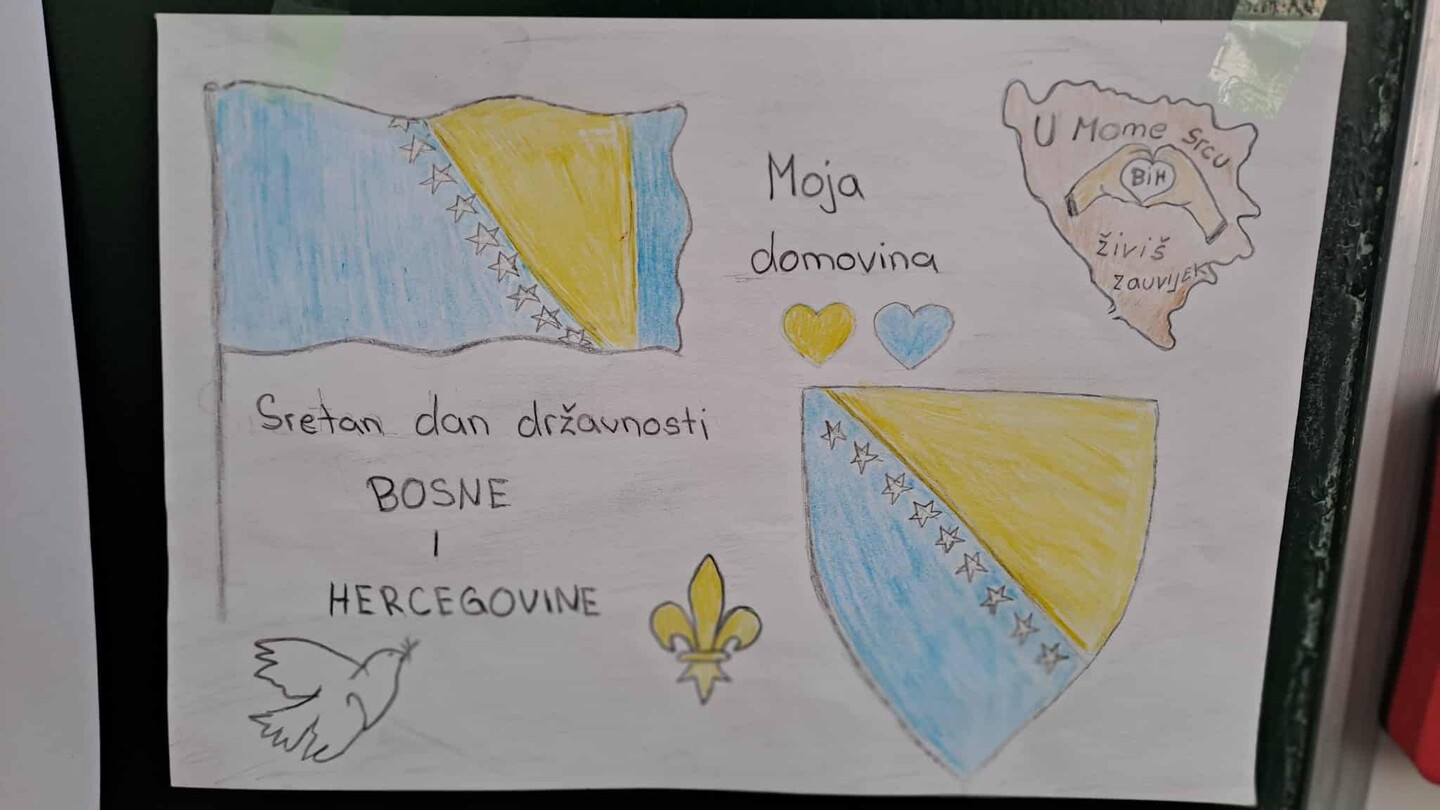 Moja
domovina
U Mome srcu
BiH
živiš
zauvijek
Sretan dan državnosti
BOSNE
I
HERCEGOVINE